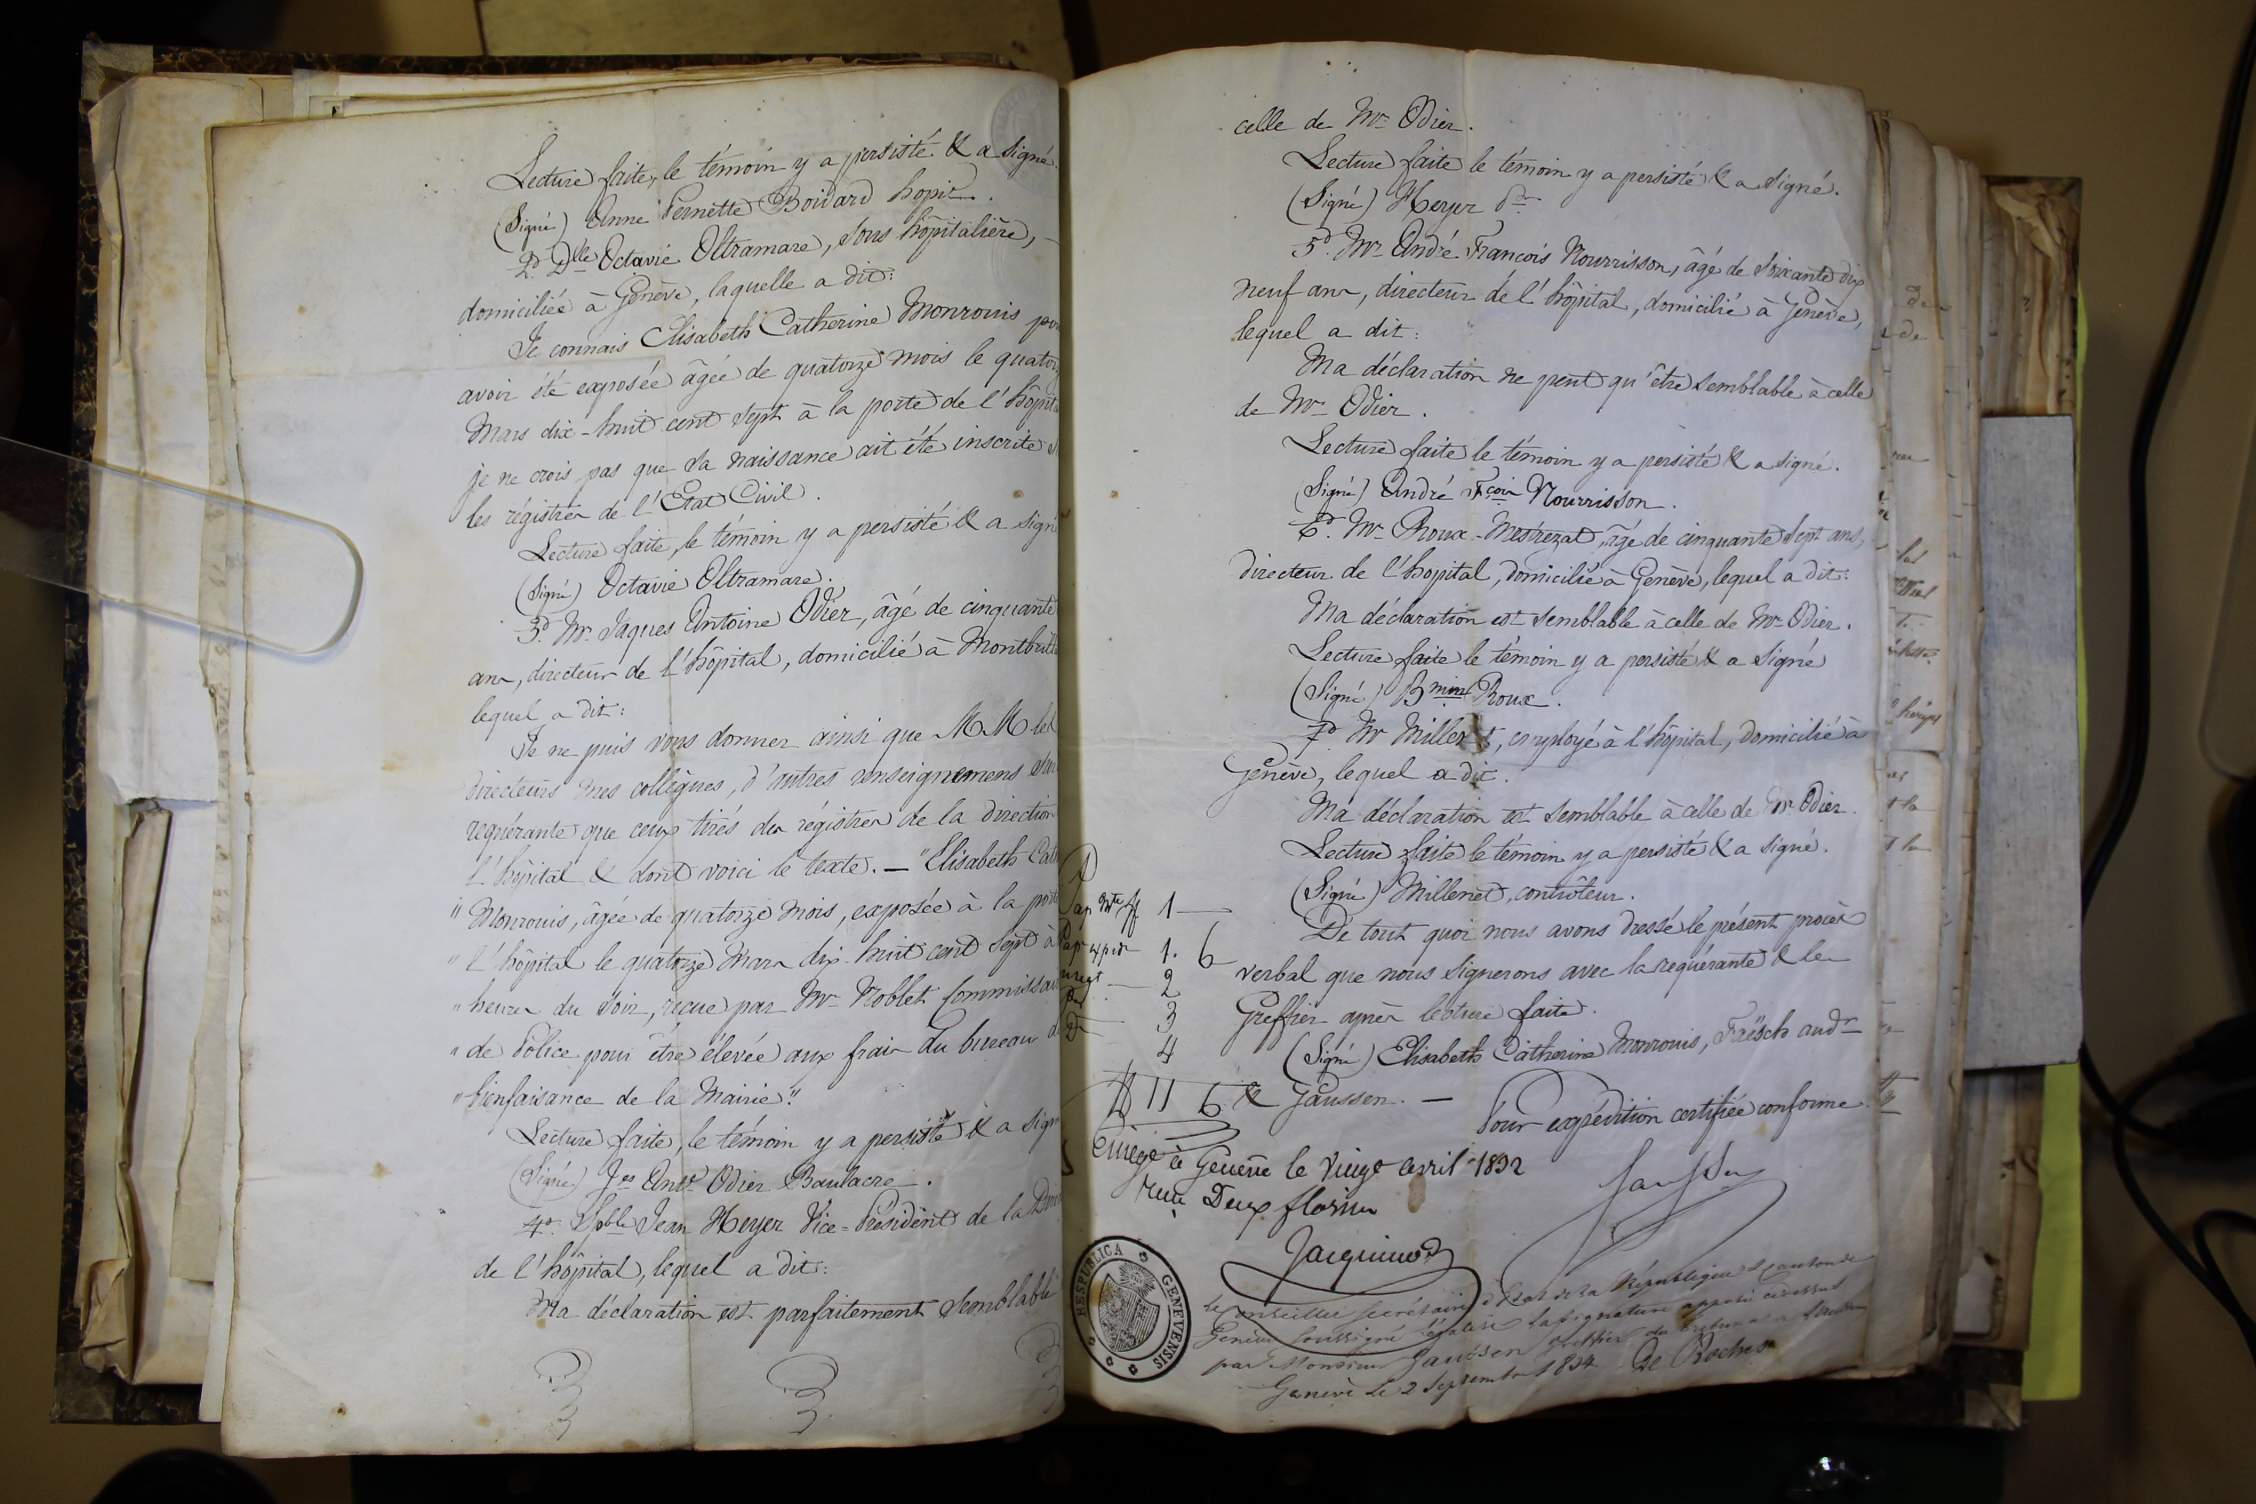 Lecture faite, le témoin y a persisté & a signé.
(Signé) Anne Pernette Boivard hopit.
2º. Dlle Octavie Oltramare, sous hôpitalière,
domiciliée à Genève, laquelle a dit:
Je connais Elisabeth Catherine Monrouis pour
avoir été exposée âgée de quatorze mois le quatorz
Mars dix-huit cent sept à la porte de l'hôpital
je ne crois pas que sa naissance ait été inscrite
les régistres de l'Etat Civil.
Lecture faite, le témoin y a persisté & a signé
(Signé) Octavie Oltramare.
3º. Mr. Jaques Antoine Odier, âgé de cinquante
ans, directeur de l'hôpital, domicilié à Montbrill
lequel a dit:
Je ne puis vous donner ainsi que MM les
directeurs mes collègues, d'autres renseignemens sur
requérante que ceux tirés des régistres de la direction
l'hôpital & dont voici le texte. — "Elisabeth Cath
" Monrouis, âgée de quatorze mois, exposée à la porte
" l'hôpital le quatorze Mars dix-huit cent sept à
" heures du soir, reçue par Mr Noblet Commissai
" de Police pour être élevée aux frais du bureau de
" bienfaisance de la Mairie."
Lecture faite, le témoin y a persisté & a signé
(Signé) Jes Ant. Odier Baulacre.
4º. Spble Jean Heyer Vice-Président de la Direc
de l'hôpital, lequel a dit:
Ma déclaration est parfaitement semblable
celle de Mr Odier.
Lecture faite le témoin y a persisté & a signé.
(Signé) Heyer Pr
5º. Mr André François Nourrisson, âgé de soixante dix
neuf ans, directeur de l'hôpital, domicilié à Genève,
lequel a dit:
Ma déclaration ne peut qu'être semblable à celle
de Mr Odier.
Lecture faite le témoin y a persisté & a signé.
(Signé) André Fçois Nourrisson.
6º. Mr Roux-Mestrezat, âgé de cinquante sept ans,
directeur de l'hopital, domicilié à Genève, lequel a dit:
Ma déclaration est semblable à celle de Mr Odier.
Lecture faite le témoin y a persisté & a signé
(Signé) Bmin Roux.
7º. Mr Millenet, employé à l'hôpital, domicilié à
Genève, lequel a dit.
Ma déclaration est semblable à celle de Mr Odier.
Lecture faite le témoin y a persisté & a signé.
(Signé) Millenet, contrôleur.
De tout quoi nous avons dressé le présent procès
verbal que nous signerons avec la requérante & le
Greffier après lecture faite.
(Signé) Elisabeth Catherine Monrouis, Faësch audr
& Gaussen. —
Pour expédition certifiée conforme.
Gaussen
1
1. 6
2
3
4
11 6
Enregé à Genève le vingt avril 1832
reçu Deux florins
Jacquimod
RESPUBLICA GENEVENSIS
Le Conseiller Secrétaire d'Etat de la République & canton de
Genève soussigné légalise la signature apposée ci dessus
par Monsieur Gaussen greffier du tribunal
Genève le 2 Septembre 1834 De Roches